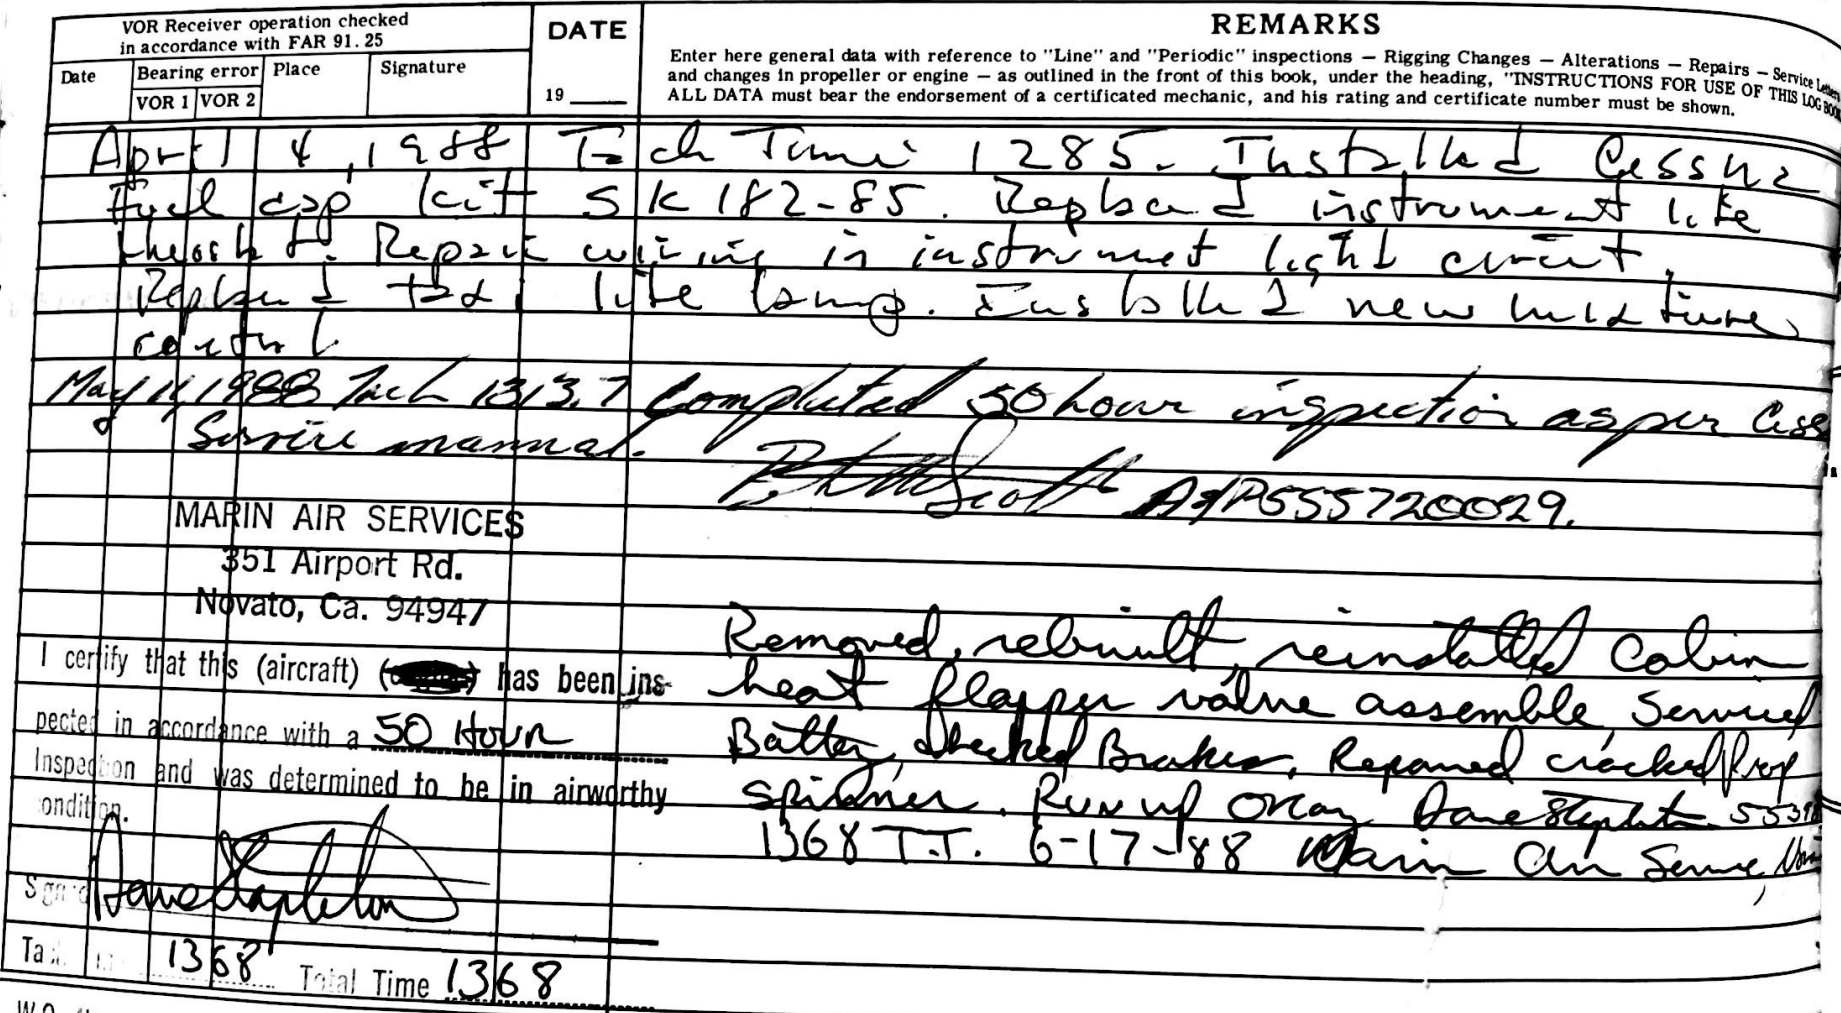 VOR Receiver operation checked
in accordance with FAR 91.25
Date
Bearing error
VOR 1 VOR 2
Place
Signature
DATE
19
REMARKS
Enter here general data with reference to "Line" and "Periodic" inspections — Rigging Changes — Alterations — Repairs — Service Letters
and changes in propeller or engine — as outlined in the front of this book, under the heading, "INSTRUCTIONS FOR USE OF THIS LOG BOOK
ALL DATA must bear the endorsement of a certificated mechanic, and his rating and certificate number must be shown.
April 4, 1988 Tach Time 1285. Installed Cessna
Fuel cap kit SK182-85. Replaced instrument lite
rheostat. Repair wiring in instrument light circuit.
Replaced taxi lite lamp. Installed new mixture
control.
May 11, 1988 Tach 1313.7 Completed 50 hour inspection as per Cess
Service manual.
Scott A&P 555720029.
MARIN AIR SERVICES
351 Airport Rd.
Novato, Ca. 94947
I certify that this (aircraft) has been ins-
pected in accordance with a 50 Hour
Inspection and was determined to be in airworthy
condition.
Signed Dave Stapleton
1368 Total Time 1368
Removed, rebuilt, reinstalled Cabin
heat flapper valve assemble, Serviced
Battery, Checked Brakes, Repaired cracked Prop
spinner. Run up Okay Dave Stapleton
1368 T.T. 6-17-88 Marin Air Service,
W.O.